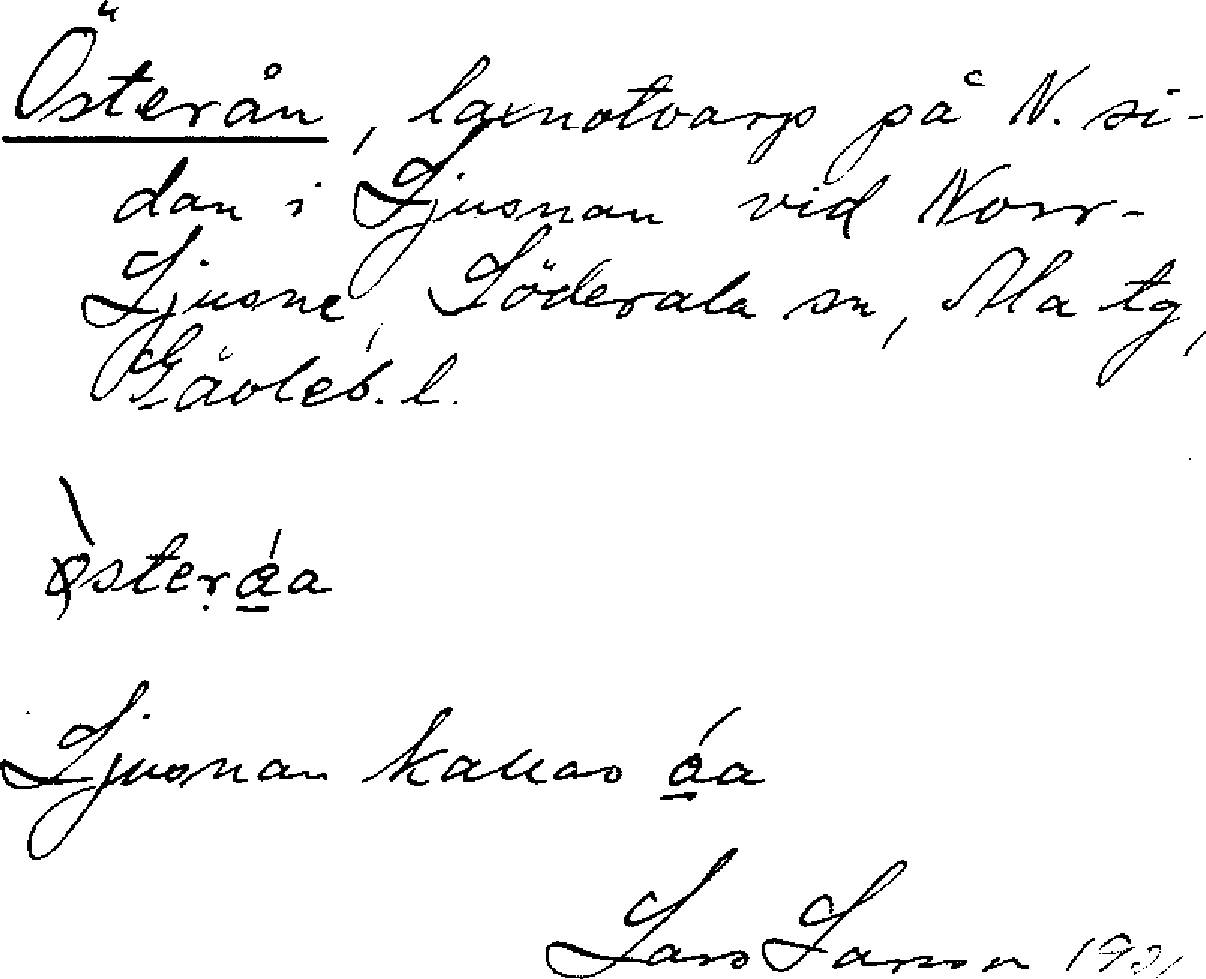 Österån, laxnotvarp på N. si-
dan i Ljusnan vid Norr-
Ljusne, Söderala sn, Ala tg,
Gävleb. l.
österåa
Ljusnan kallas åa
Lars Larson